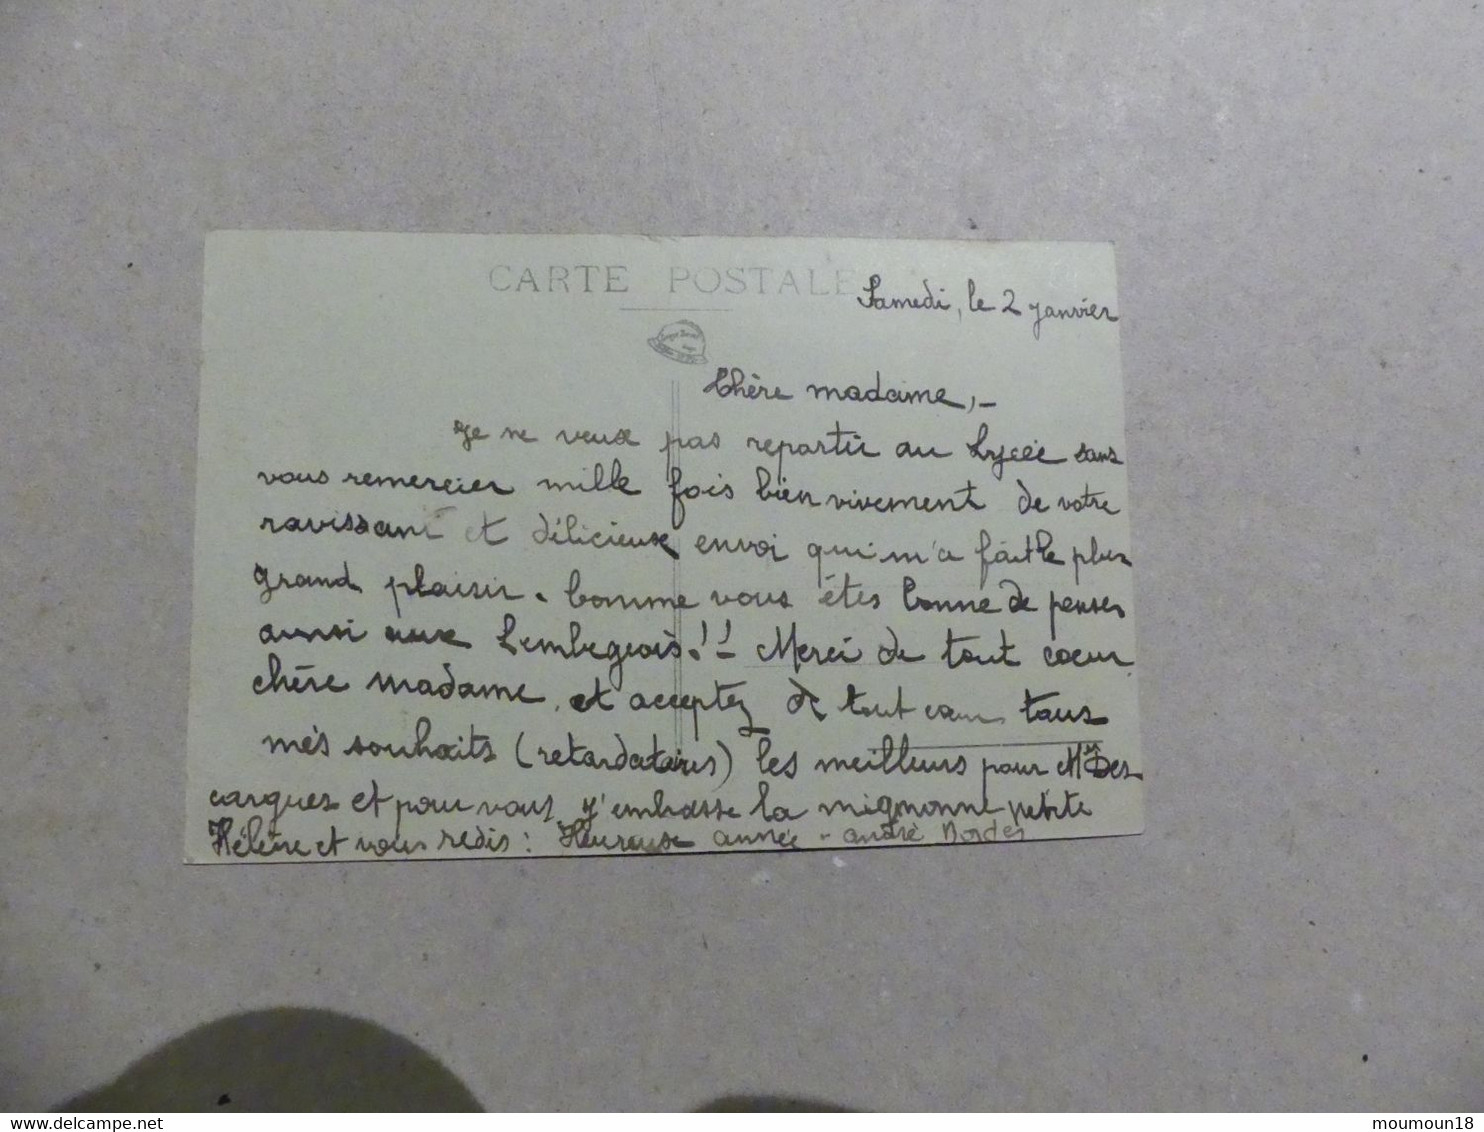 CARTE POSTALE
Samedi, le 2 janvier
Chère madame,-
Je ne veux pas repartir au Lycée sans
vous remercier mille fois bien vivement de votre
ravissant et délicieux envoi qui m'a fait le plus
grand plaisir. Comme vous êtes bonne de penser
ainsi aux Lembegeois!!- Merci de tout coeur
chère madame, et acceptez de tout coeur tous
mes souhaits (retardataires) les meilleurs pour Mr Des
cargues et pour vous. J'embrasse la mignonne petite
Hélène et vous redis : Heureuse année - André Bordes
moumoun18